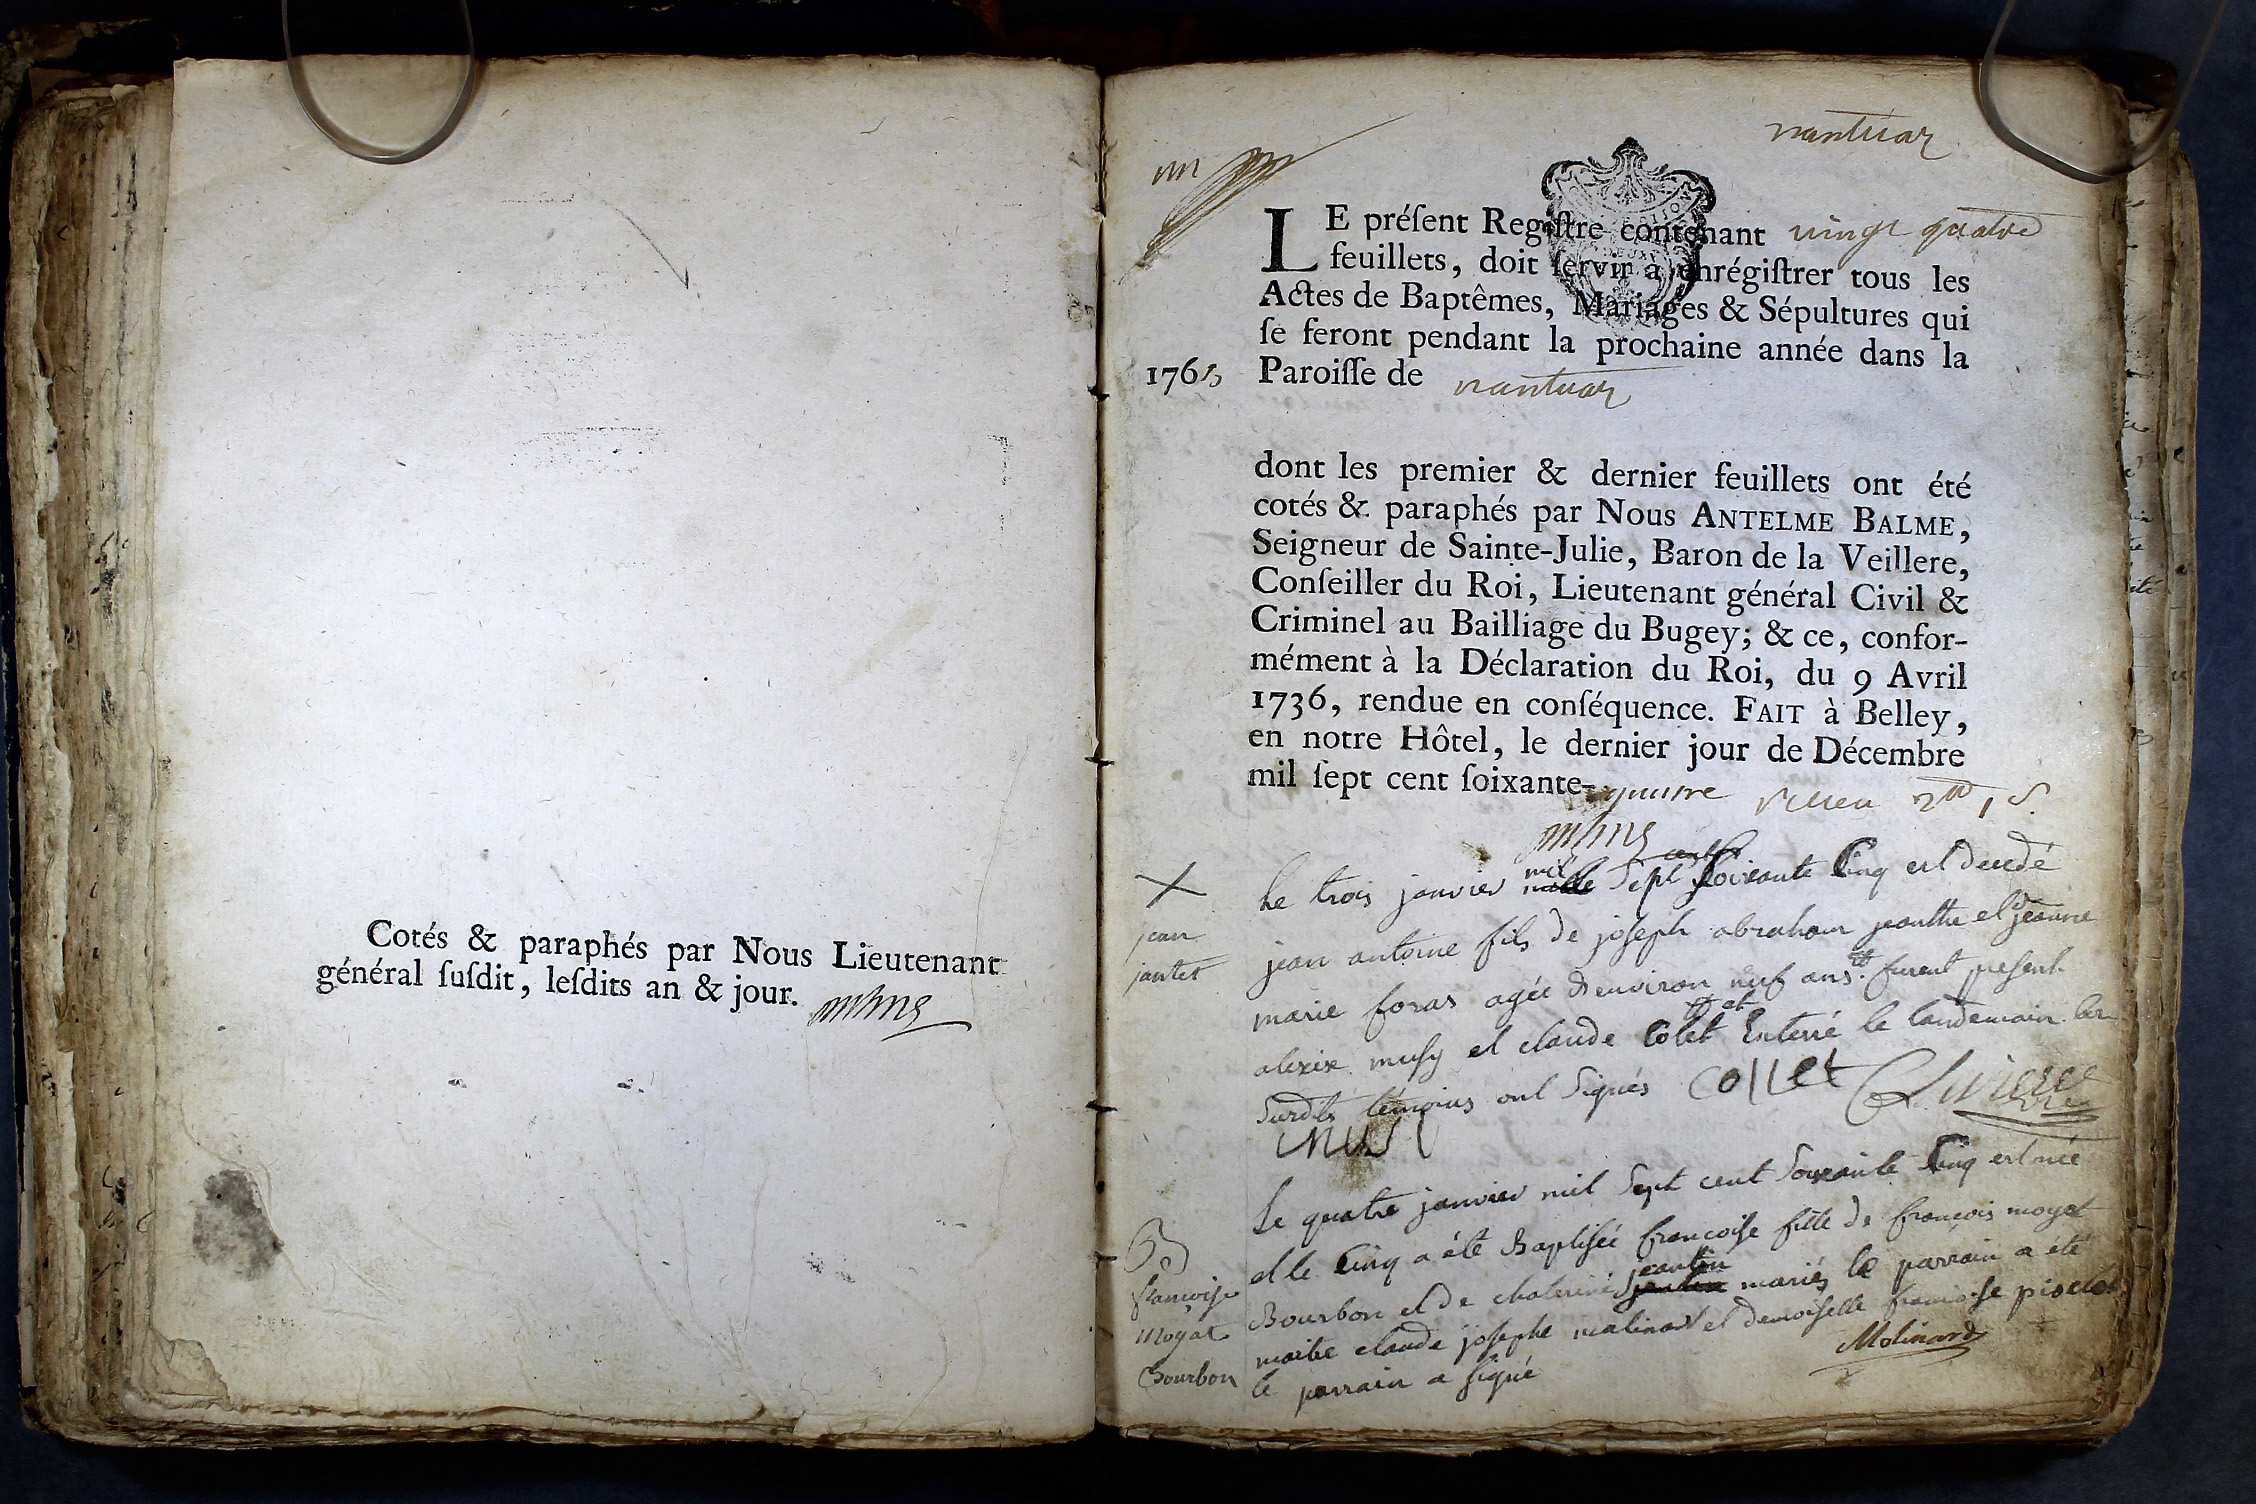 Cotés & paraphés par Nous Lieutenant
général ſuſdit, leſdits an & jour.
nantuar
un
LE préſent Regiſtre contenant vingt quatre
feuillets, doit ſervir à enrégiſtrer tous les
Actes de Baptêmes, Mariages & Sépultures qui
ſe feront pendant la prochaine année dans la
1765 Paroiſſe de nantuar
dont les premier & dernier feuillets ont été
cotés & paraphés par Nous ANTELME BALME,
Seigneur de Sainte-Julie, Baron de la Veillere,
Conſeiller du Roi, Lieutenant général Civil &
Criminel au Bailliage du Bugey; & ce, confor-
mément à la Déclaration du Roi, du 9 Avril
1736, rendue en conſéquence. FAIT à Belley,
en notre Hôtel, le dernier jour de Décembre
mil ſept cent ſoixante-quatre
Le trois janvier mil Sept cent Soixante Cinq est decedé
jean
jantet
jean antoine fils de joseph abraham jeanthe et de jeanne
marie foras agée d'environ neuf ans furent present
alexix musy et claude Colet et Enterré le landemain les
Surdts témoins ont Signés Collet
Le quatre janvier mil Sept cent Soixante Cinq est née
et le Cinq a été Baptisée francoise fille de françois moyat
Bourbon et de chaterine jeantin mariés le parrain a été
maitre claude josephe molinard et demoiselle francoise
le parrain a signé Molinard
françoise
Moyat
Bourbon